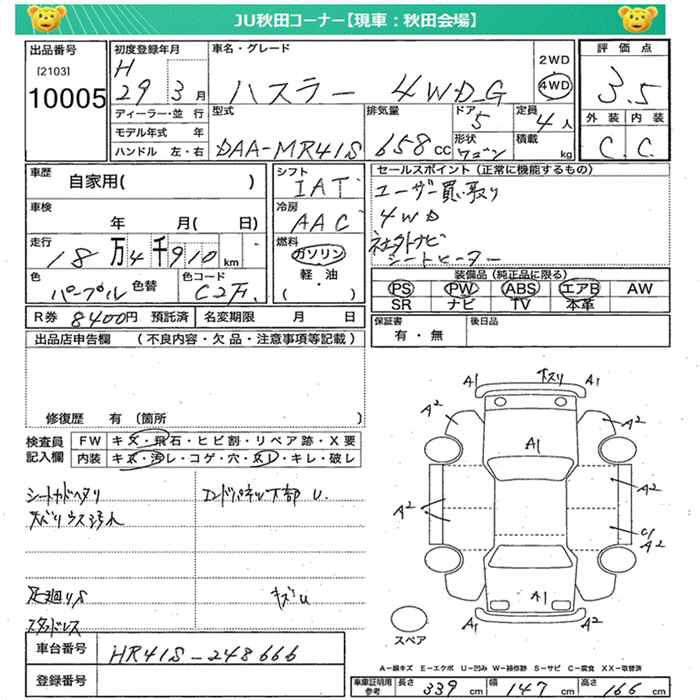 JU秋田コーナー【現車：秋田会場】
出品番号
[2103]
10005
初度登録年月
H
29 3月
車名・グレード
ハスラー 4WD G
2WD
4WD
評価点
3.5
外装 内装
C. C.
ディーラー・並行
モデル年式 年
ハンドル 左・右
型式
DAA-MR41S
排気量
658cc
ドア
5
形状
ワゴン
定員
4人
積載
kg
車歴
自家用( )
車検
年 月( 日)
走行
18万4千910km
色
パープル
色替
色コード
C2F.
シフト
IAT
冷房
AAC
燃料
ガソリン
軽・油
( )
セールスポイント（正常に機能するもの）
ユーザー買い取り
4WD
社外ナビ
シートヒーター
装備品（純正品に限る）
PS PW ABS エアB AW
SR ナビ TV 本革
R券 8400円 預託済 名変期限 月 日
保証書
有・無
後日品
出品店申告欄 （不良内容・欠品・注意事項等記載）
修復歴 有（箇所 ）
検査員
記入欄
FW キズ・飛石・ヒビ割・リペア跡・X要
内装 キズ・汚レ・コゲ・穴・スレ・キレ・破レ
エンドパネル下部 U.
キズU
スタッドレス
車台番号
MR41S-248666
登録番号
A1 キズリ A1
A2 A2
A1
A2
A2
A2
A1
A1 A2
スペア
A－線キズ E－エクボ U－凹み W－補修跡 S－サビ C－腐食 XX－取替済
車庫証明用
参考
長さ 339cm 幅 147cm 高さ 166cm